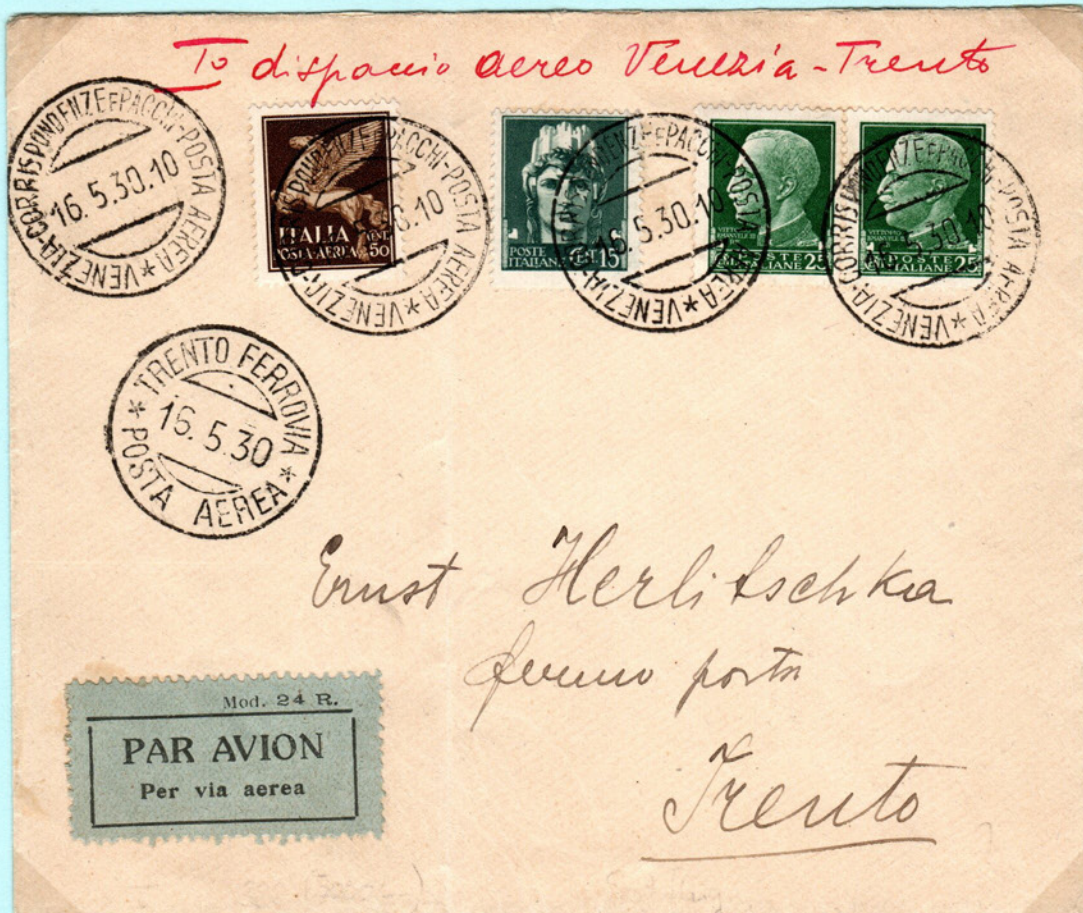 Io dispaccio aereo Venezia-Trento
VENEZIA-CORRISPONDENZE E PACCHI-POSTA AEREA *
16.5.30.10
ITALIA
POSTA-AEREA
CENT. 50
VENEZIA-CORRISPONDENZE E PACCHI-POSTA AEREA *
30.10
POSTE
ITALIANE
CENT 15
VENEZIA-CORRISPONDENZE E PACCHI-POSTA AEREA *
16.5.30.10
VITTORIO
EMANUELE III
POSTE
ITALIANE 25
VITTORIO
EMANUELE III
POSTE
ITALIANE 25
VENEZIA-CORRISPONDENZE E PACCHI-POSTA AEREA *
16.5.30.10
TRENTO FERROVIA
16.5.30
* POSTA AEREA *
Ernst Herlitschka
fermo posta
Trento
Mod. 24 R.
PAR AVION
Per via aerea